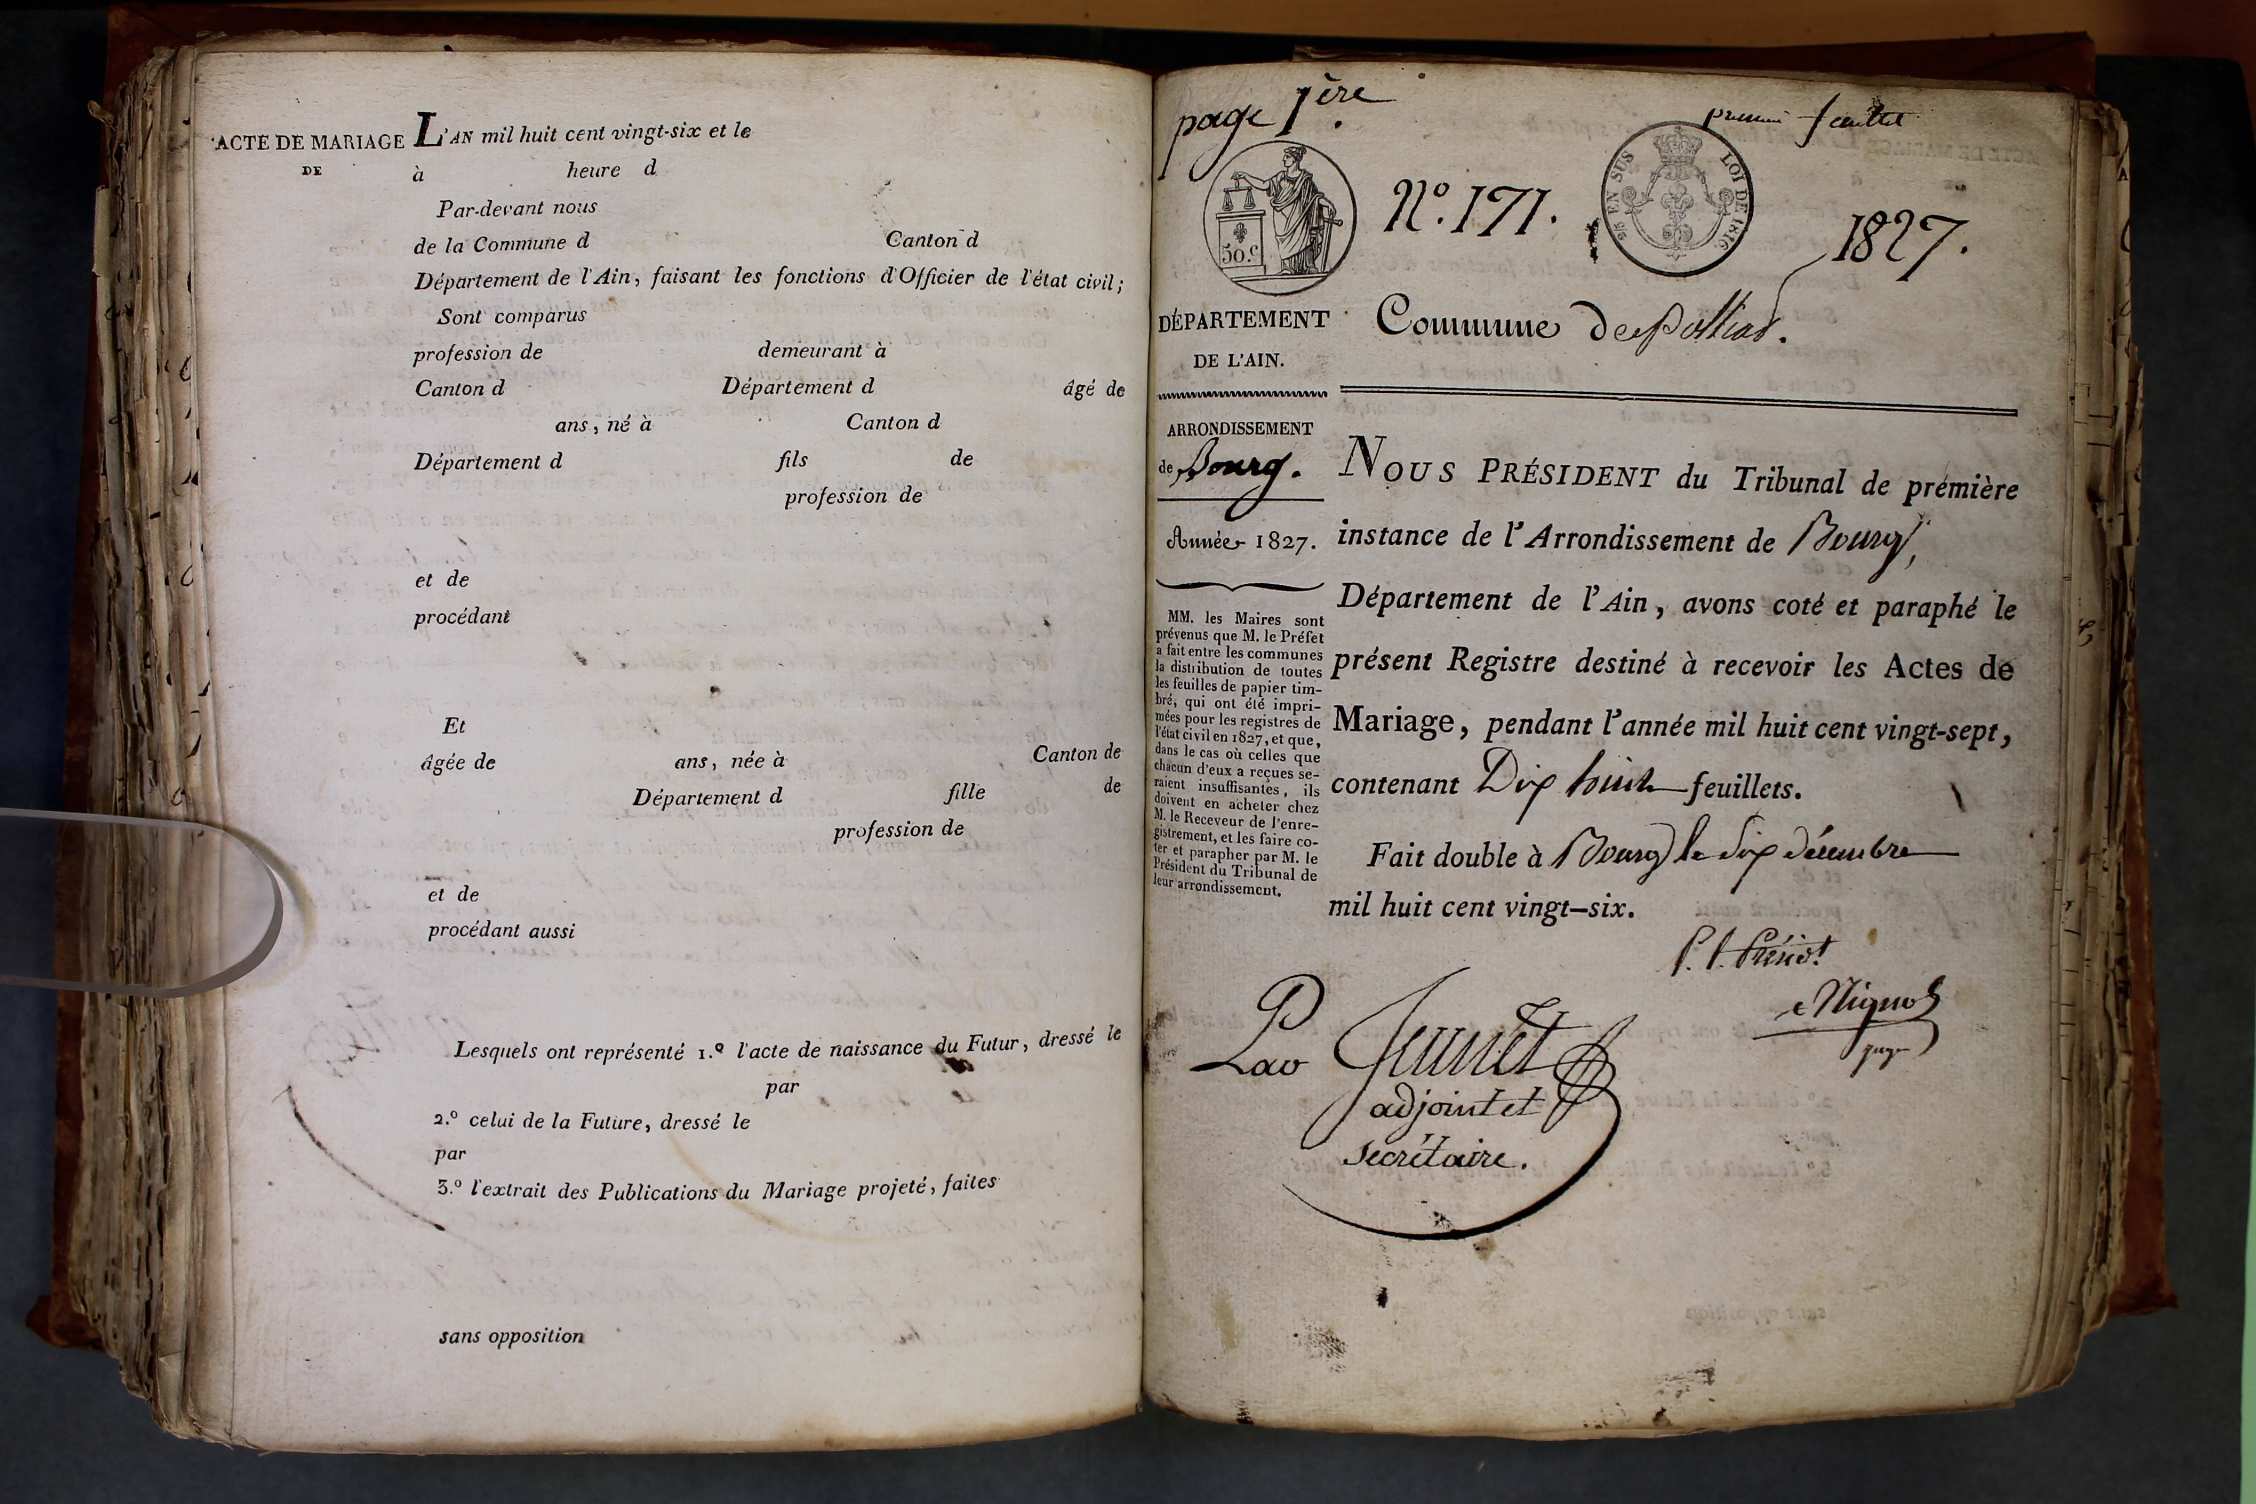 ACTE DE MARIAGE L'AN mil huit cent vingt-six et le
DE à heure d
Par-devant nous
de la Commune d Canton d
Département de l'Ain, faisant les fonctions d'Officier de l'état civil;
Sont comparus
profession de demeurant à
Canton d Département d âgé de
ans, né à Canton d
Département d fils de
profession de
et de
procédant
Et
âgée de ans, née à Canton de
Département d fille de
profession de
et de
procédant aussi
Lesquels ont représenté 1.º l'acte de naissance du Futur, dressé le
par
2.º celui de la Future, dressé le
par
3.º l'extrait des Publications du Mariage projeté, faites
sans opposition
page 1ère.
premier feuillet
50.c
N.º 171.
EN SUS LOI DE 1816
1827.
DÉPARTEMENT
DE L'AIN.
Commune de Polliat.
ARRONDISSEMENT
de Bourg.
Année 1827.
MM. les Maires sont
prévenus que M. le Préfet
a fait entre les communes
la distribution de toutes
les feuilles de papier tim-
bré, qui ont été impri-
mées pour les registres de
l'état civil en 1827, et que,
dans le cas où celles que
chacun d'eux a reçues se-
raient insuffisantes, ils
doivent en acheter chez
M. le Receveur de l'enre-
gistrement, et les faire co-
ter et parapher par M. le
Président du Tribunal de
leur arrondissement.
NOUS PRÉSIDENT du Tribunal de prémière
instance de l'Arrondissement de Bourg,
Département de l'Ain, avons coté et paraphé le
présent Registre destiné à recevoir les Actes de
Mariage, pendant l'année mil huit cent vingt-sept,
contenant Dix huit feuillets.
Fait double à Bourg le dix décembre
mil huit cent vingt-six.
P. l. Présidt
Nignol
juge
Jeunet
adjoint et
secrétaire.